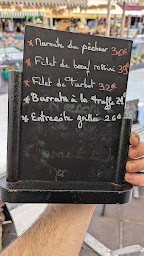 * Marmite du pêcheur 30€
* Filet de bœuf rossini 39
* Filet de Turbot 32€
* Burrata à la truffe 21
* Entrecôte grillée 26€